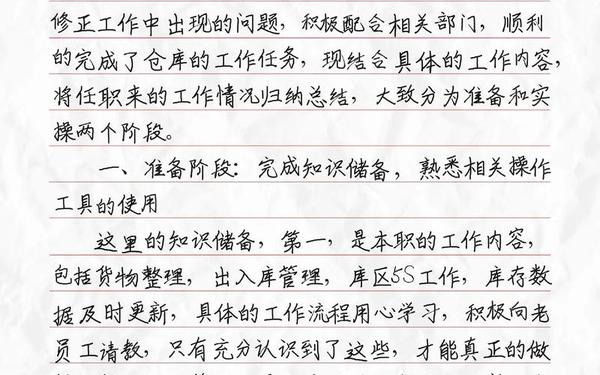 修正工作中出现的问题，积极配合相关部门，顺利
的完成了仓库的工作任务，现结合具体的工作内容，
将任职来的工作情况归纳总结，大致分为准备和实
操两个阶段。
一、准备阶段：完成知识储备，熟悉相关操作
工具的使用
这里的知识储备，第一，是本职的工作内容，
包括货物整理，出入库管理，库区5S工作，库存数
据及时更新，具体的工作流程用心学习，积极向老
员工请教，只有充分认识到了这些，才能真正的做